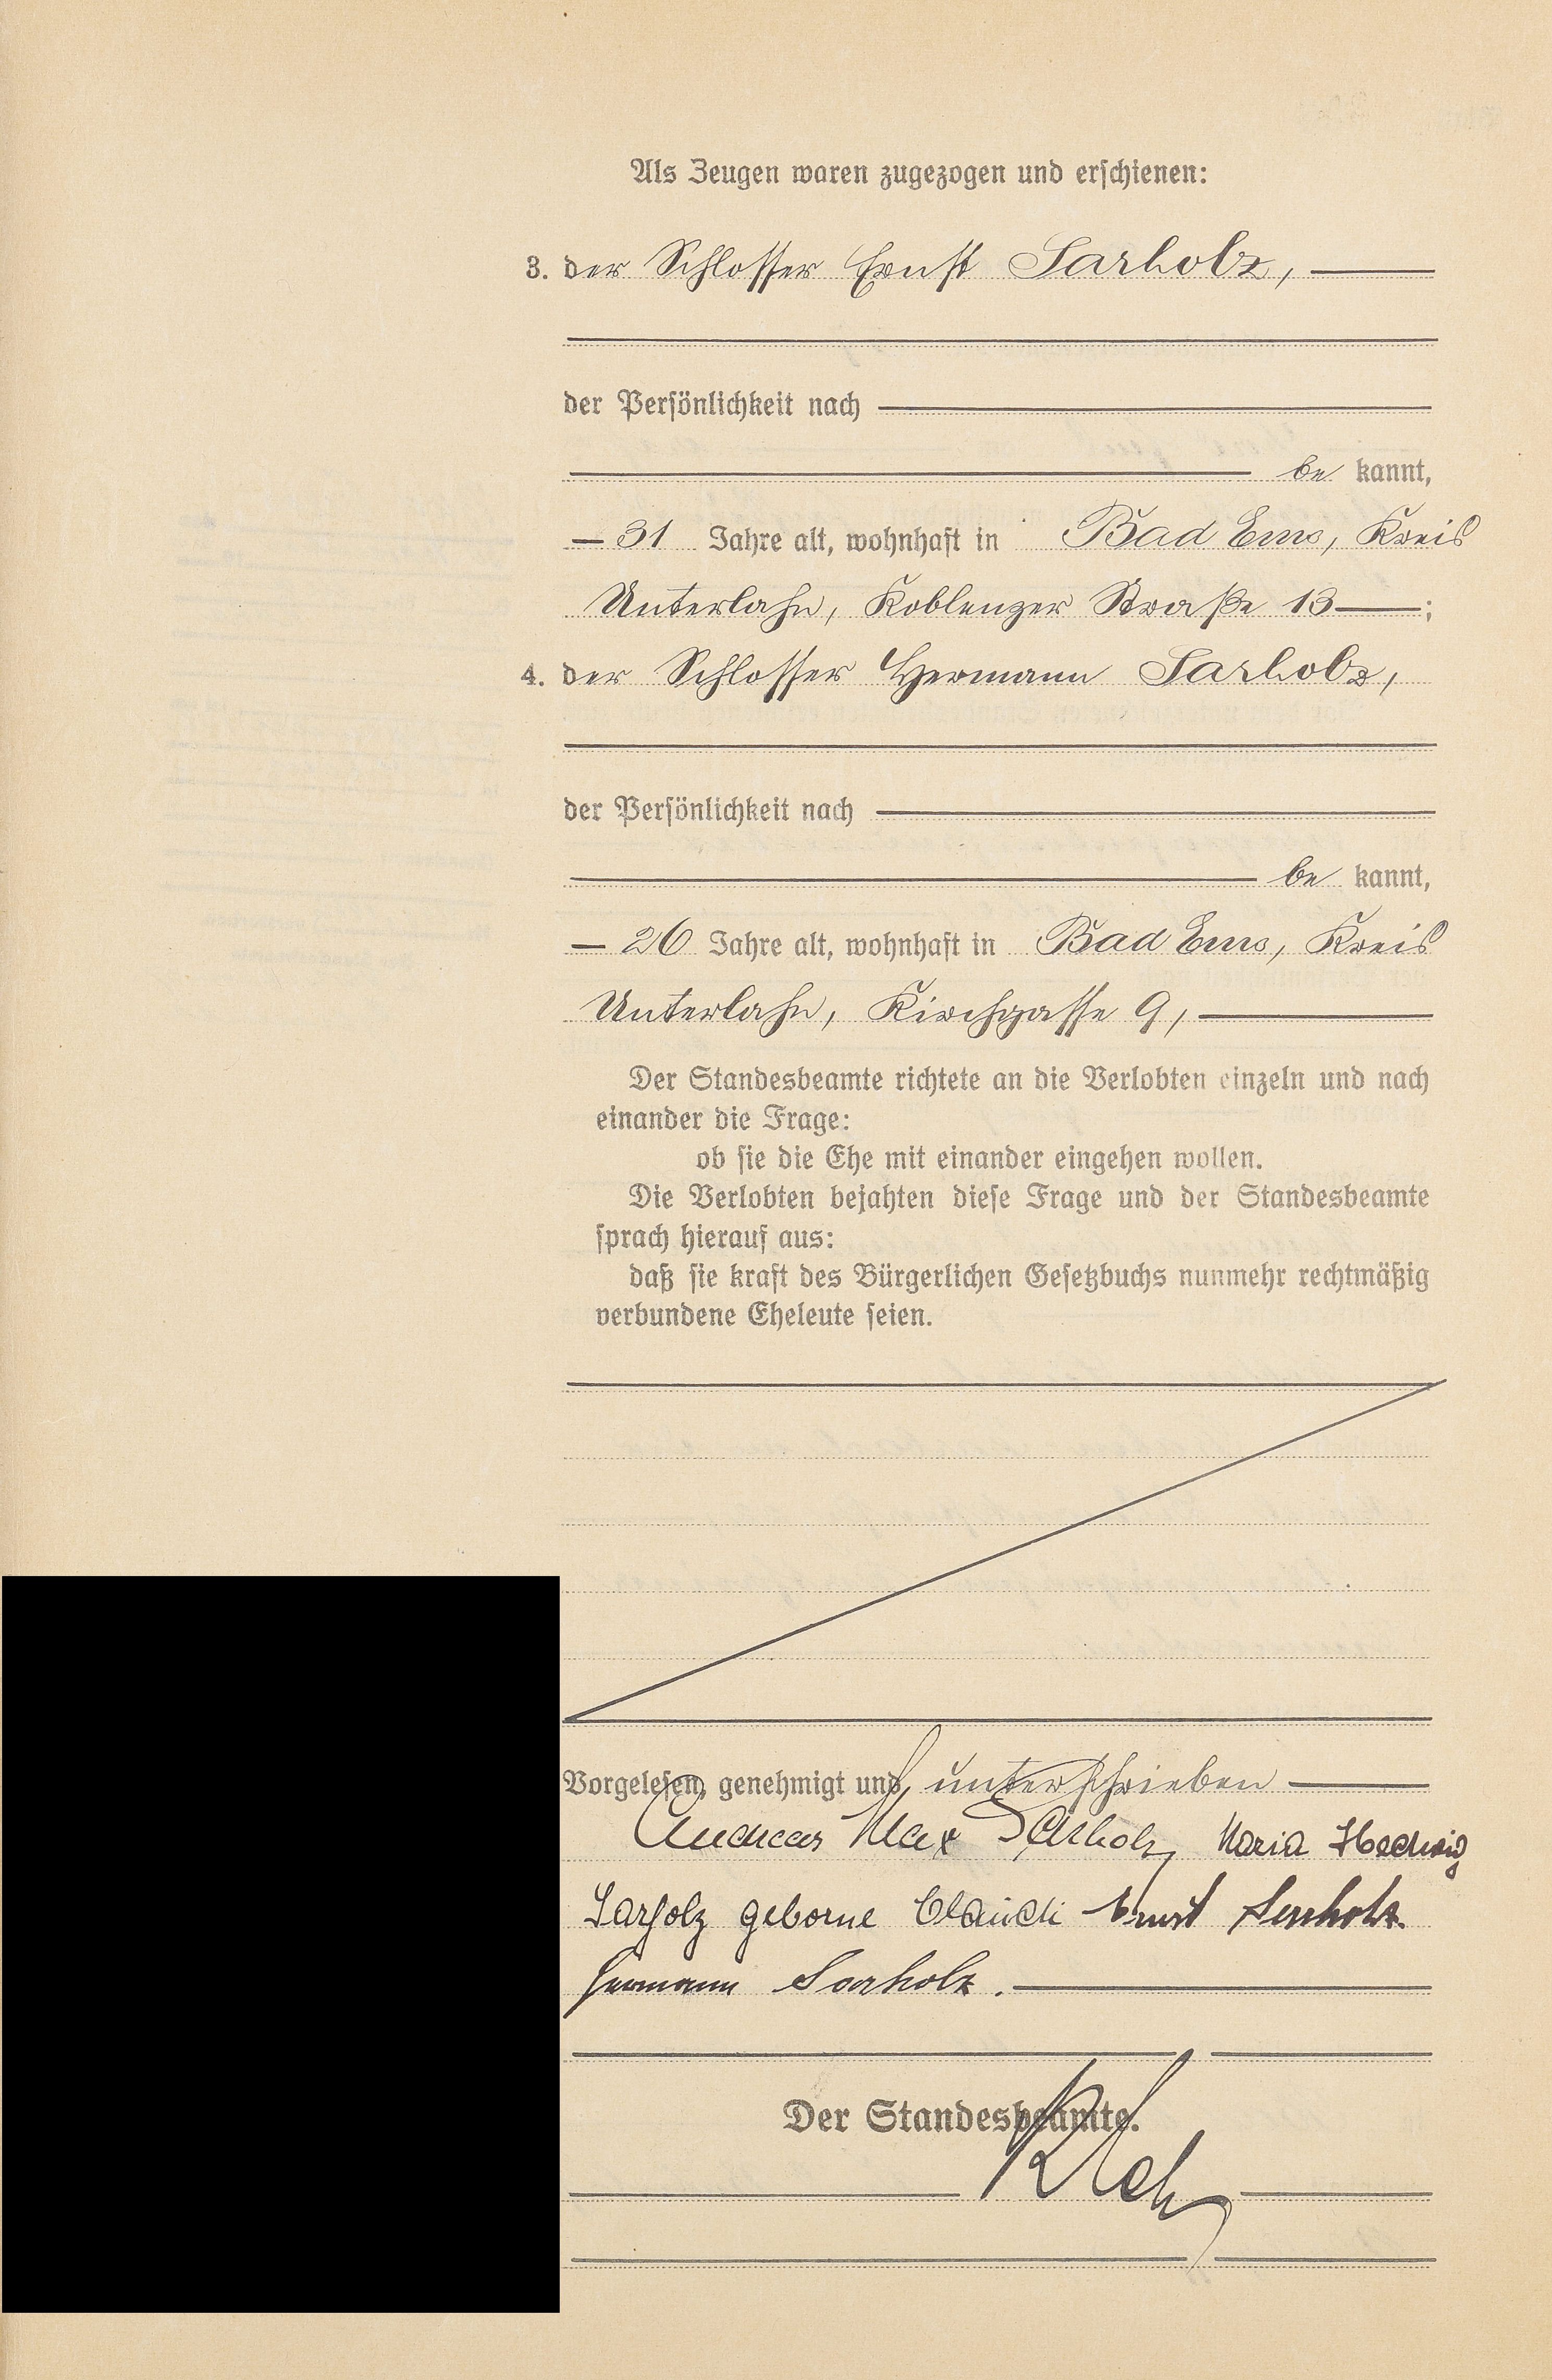 Als Zeugen waren zugezogen und erschienen:
3. der Schlosser Ernst Sarholz,
der Persönlichkeit nach
be kannt,
31 Jahre alt, wohnhaft in Bad Ems, Kreis
Unterlahn, Koblenzer Straße 13;
4. der Schlosser Hermann Sarholz,
der Persönlichkeit nach
be kannt,
26 Jahre alt, wohnhaft in Bad Ems, Kreis
Unterlahn, Kirchgasse 9,
Der Standesbeamte richtete an die Verlobten einzeln und nach
einander die Frage:
ob sie die Ehe mit einander eingehen wollen.
Die Verlobten bejahten diese Frage und der Standesbeamte
sprach hierauf aus:
daß sie kraft des Bürgerlichen Gesetzbuchs nunmehr rechtmäßig
verbundene Eheleute seien.
Vorgelesen, genehmigt und unterschrieben
Andreas Max Sarholz Maria Hedwig
Sarholz geborne Ernst Sarholz
Hermann Sarholz.
Der Standesbeamte.